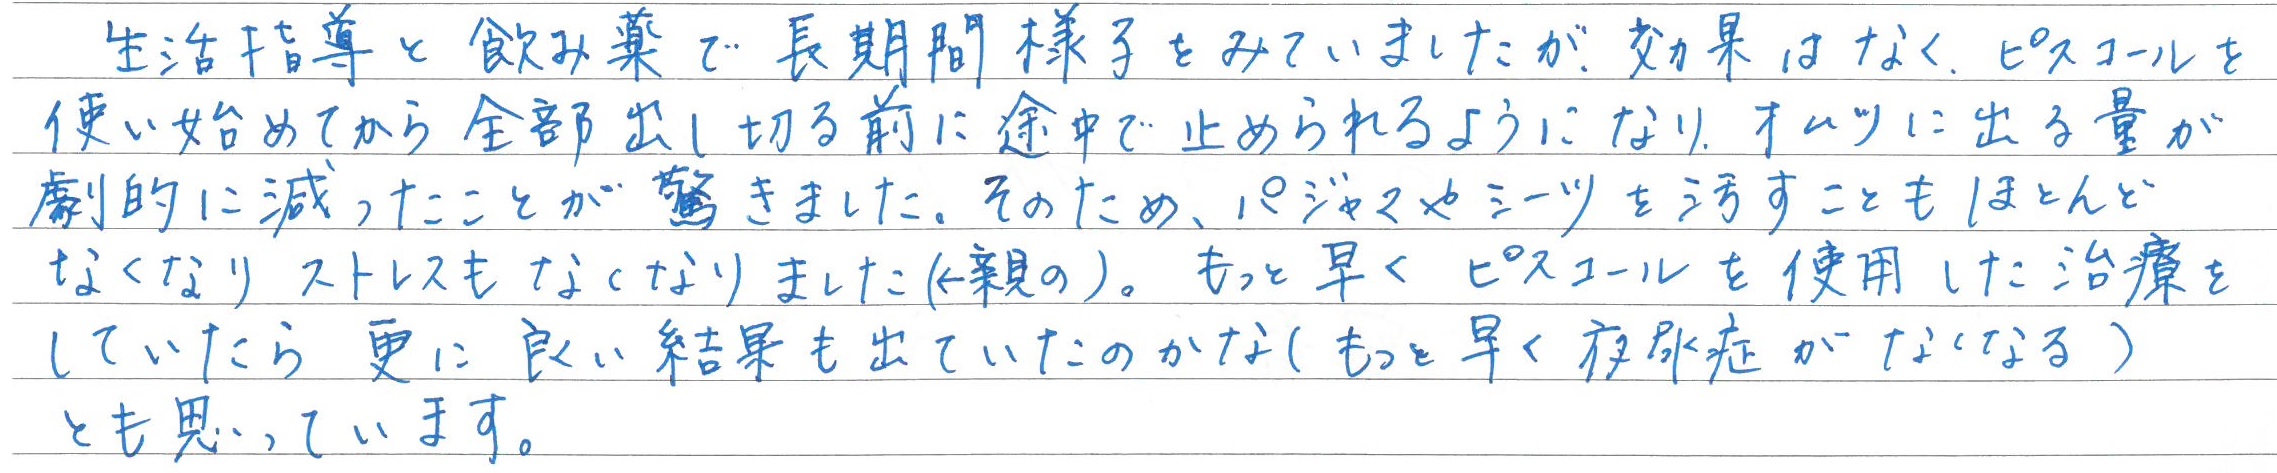 生活指導と飲み薬で長期間様子をみていましたが、効果はなく、ピスコールを
使い始めてから全部出し切る前に途中で止められるようになり、オムツに出る量が
劇的に減ったことが驚きました。そのため、パジャマやシーツを汚すこともほとんど
なくなりストレスもなくなりました(←親の)。もっと早くピスコールを使用した治療を
していたら更に良い結果も出ていたのかな(もっと早く夜尿症がなくなる)
とも思っています。